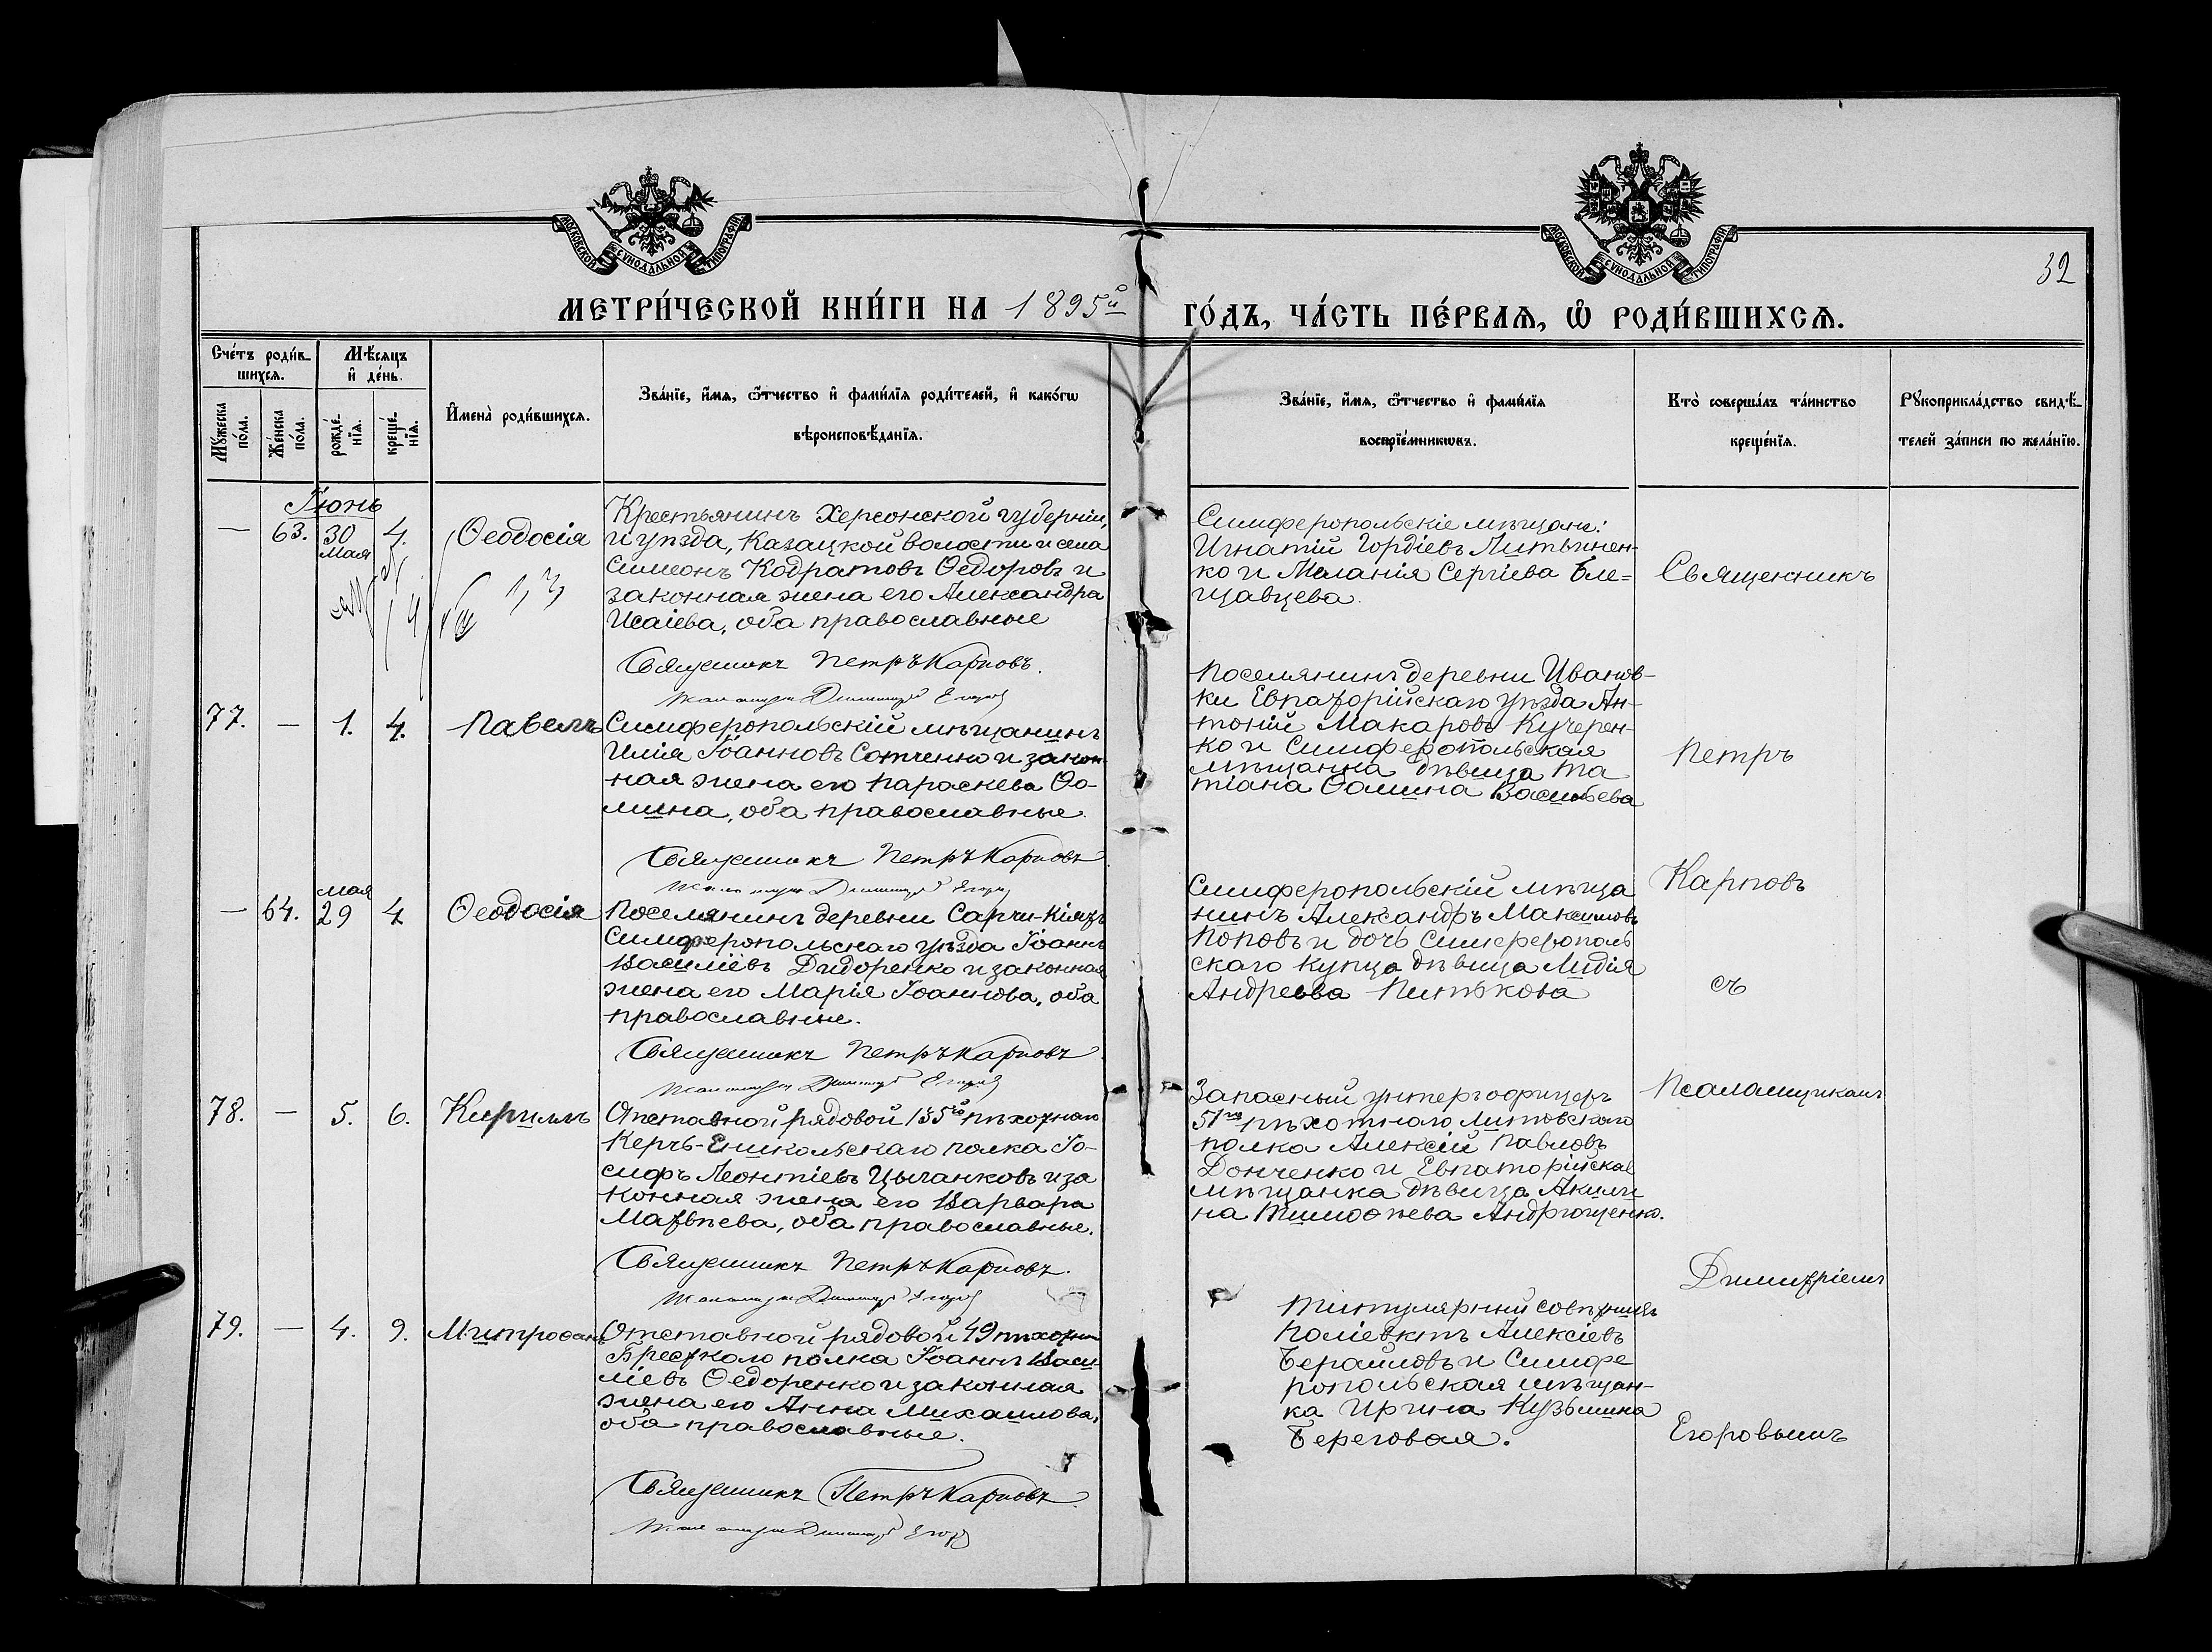 МОСКОВСКОЙ СѴНОДАЛЬНОЙ ТИПОГРАФІИ
МОСКОВСКОЙ СѴНОДАЛЬНОЙ ТИПОГРАФІИ
32
МЕТРИ́ЧЕСКОЙ КНИ́ГИ НА 1895й ГО́ДЪ, ЧА́СТЬ ПЕ́РВАѦ, Ѽ РОДИ́ВШИХСѦ.
Сче́тъ роди́в-
шихсѧ.
Мѣ́сяцъ
и҆ де́нь.
Мꙋ́жеска
по́ла.
Же́нска
по́ла.
рожде́-
нїѧ.
креще́-
нїѧ.
И҆мена̀ роди́вшихсѧ.
Зва́нїе, и҆́мѧ, ѻ҆́тчество и҆ фами́лїѧ роди́телей, и҆ како́гѡ
вѣроисповѣ́данїѧ.
Зва́нїе, и҆́мѧ, ѻ҆́тчество и҆ фами́лїѧ
воспрїе́мникѡвъ.
Кто̀ соверша́лъ та́инство
креще́нїѧ.
Рꙋкоприкла́дство свидѣ́-
телей за́писи по жела́нїю.
Іюнь
— 63. 30 4. Ѳеодосія
Мая
Крестьянинъ Херсонской губерніи,
и уѣзда, Казацкой волости и села
Симеонъ Кодратовъ Ѳедоровъ и
законная жена его Александра
Исаіева, оба православные
Священникъ Петръ Карповъ.
Димитрій Егоров
Симферопольскіе мѣщане:
Игнатій Гордіевъ Литвинен-
ко и Меланія Сергіева Бле=
щавцева.
Священникъ
77. — 1. 4. Павелъ
Симферопольскій мѣщанинъ
Илія Іоанновъ Сотченко и закон-
ная жена его Параскева Ѳо-
мина, оба православные.
Священникъ Петръ Карповъ
Димитрій Егоров
Поселянинъ деревни Иванов-
ки Евпаторійскаго уѣзда Ан-
тоній Макаровъ Кучерен-
ко и Симферопольская
мѣщанка дѣвица Та
тіана Ѳомина Васильева
Петръ
мая
— 64. 29 4 Ѳеодосія
Поселянинъ деревни Сарчи-Кіязъ
Симферопольскаго уѣзда Іоаннъ
Василіевъ Дидоренко и законная
жена его Марія Іоаннова, оба
православные.
Священникъ Петръ Карповъ
Димитрій Егоров
Симферопольскій мѣща
нинъ Александръ Максимовъ
Поповъ и дочь Симферополь
скаго купца дѣвица Лидія
Андреева Питькова
Карповъ
съ
78. — 5. 6. Кириллъ
Отставной рядовой 135го пѣхотнаго
Керчь-Еникольскаго полка Іо-
сифъ Леонтіевъ Цыганковъ и за
конная жена его Варвара
Матвѣева, оба православные.
Священникъ Петръ Карповъ.
Димитрій Егоров
Запасный унтеръ офицеръ
51го пѣхотнаго Литовскаго
полка Алексій Павловъ
Донченко и Евпаторійская
мѣщанка дѣвица Акили
на Тимоѳеева Андрющенко.
Псаломщикомъ
79. — 4. 9. Митрофанъ
Отставной рядовой 49 пѣхотн
Бресткаго полка Іоаннъ Васи-
ліевъ Ѳедоренко и законная
жена его Анна Михаилова,
оба православные.
Священникъ Петръ Карповъ
Димитрій Егоров
Титулярный совѣтникъ
Поліевктъ Алексіевъ
и Симфе
ропольская мѣщан-
ка Ирина Кузьмина
Береговая.
Димитріемъ
Егоровымъ